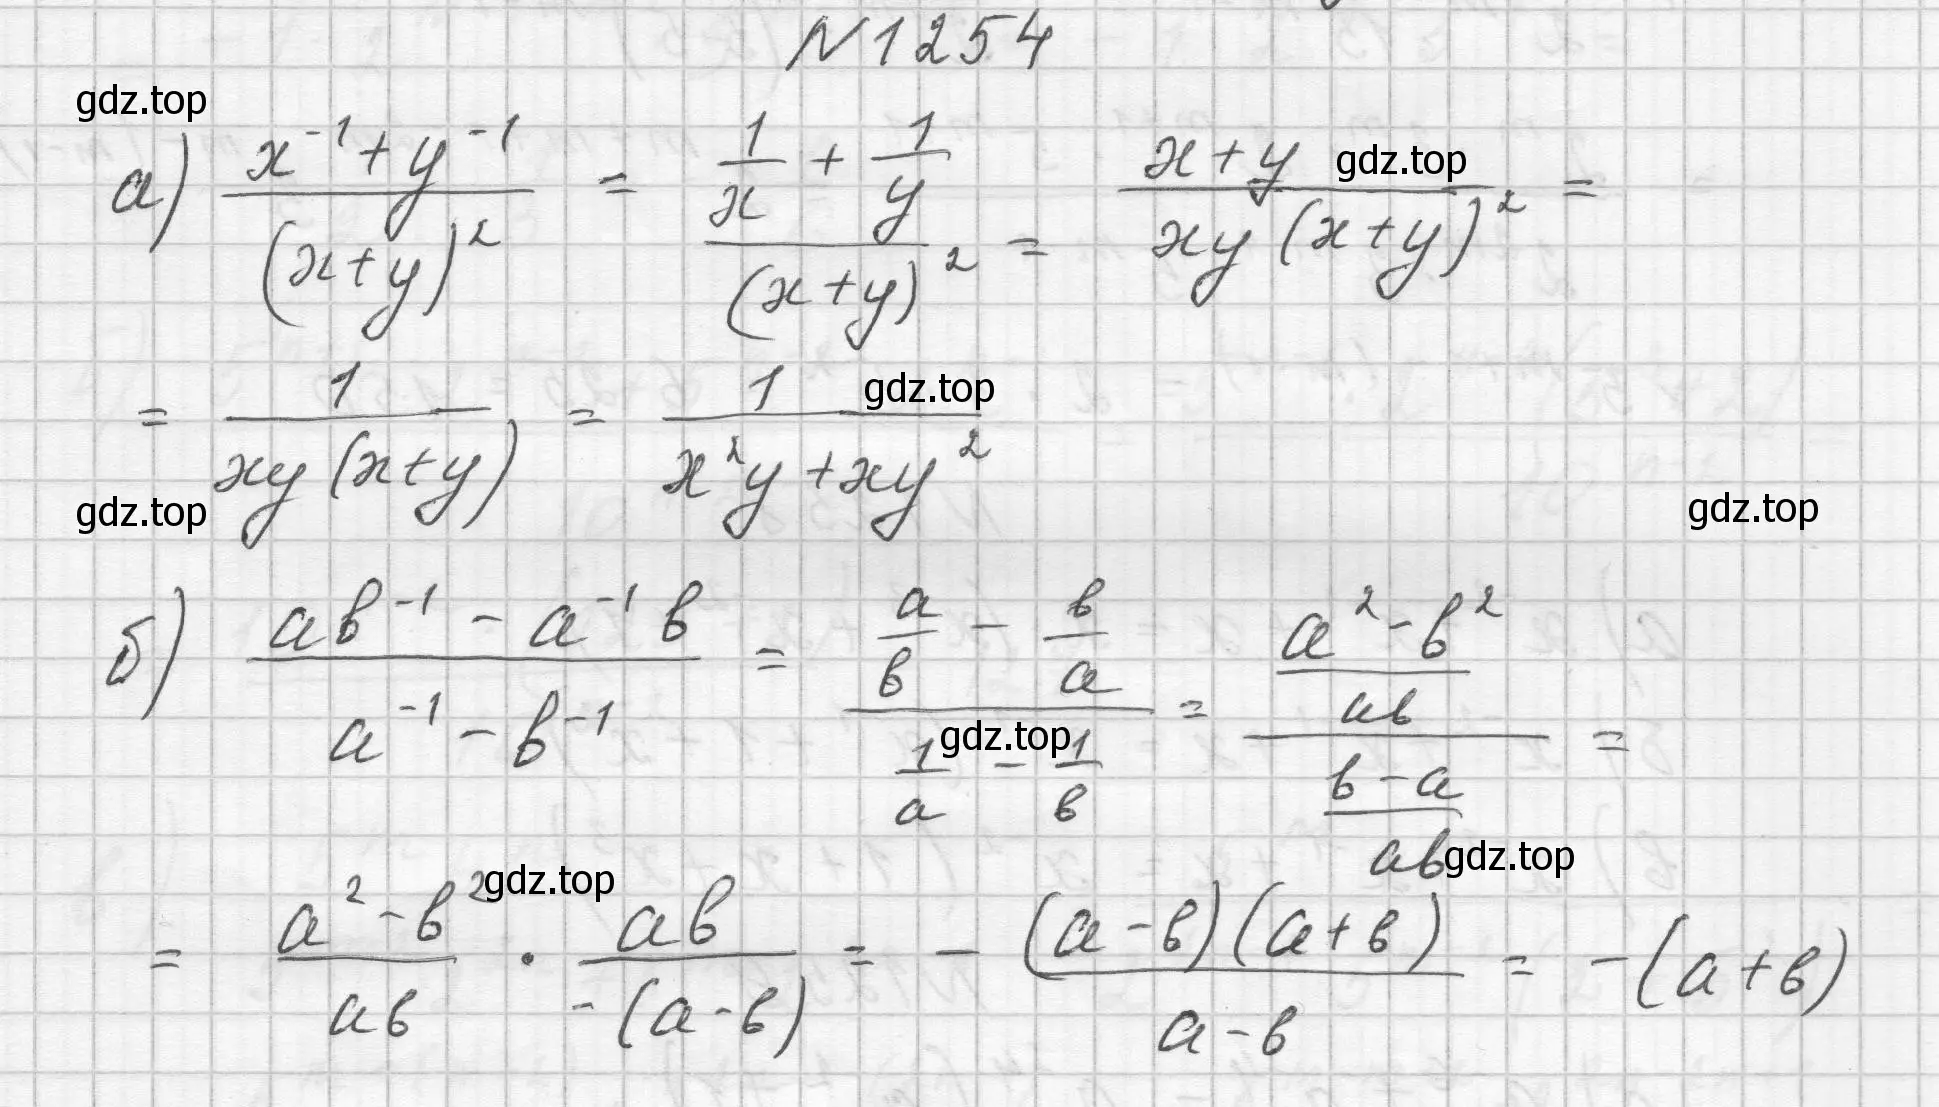 N 1254
gdz.top
а) (x⁻¹ + y⁻¹)/(x+y)² = (1/x + 1/y)/(x+y)² = (x+y)/(xy(x+y)²) =
gdz.top
= 1/(xy(x+y)) = 1/(x²y + xy²)
gdz.top
gdz.top
gdz.top
б) (ab⁻¹ − a⁻¹b)/(a⁻¹ − b⁻¹) = (a/b − b/a)/(1/a − 1/b) = ((a² − b²)/ab)/((b − a)/ab) =
gdz.top
gdz.top
= (a² − b²)/ab · ab/(−(a − b)) = − ((a − b)(a + b))/(a − b) = −(a + b)
gdz.top